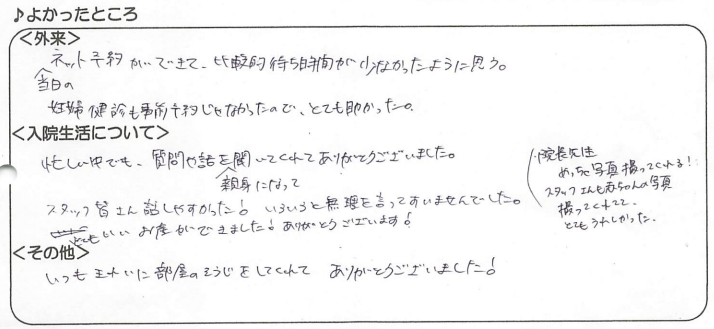 ♪よかったところ
<外来>
ネット予約ができて、比較的待ち時間が少なかったように思う。
当日の
妊婦健診も事前予約じゃなかったので、とても助かった。
<入院生活について>
忙しい中でも、質問や話を聞いてくれてありがとうございました。
親身になって
スタッフ皆さん話しやすかった！ いろいろと無理を言ってすいませんでした。
とてもいいお産ができました！ありがとうございます！
院長先生
めっちゃ写真撮ってくれる！
スタッフさんも赤ちゃんの写真
撮ってくれてて
とてもうれしかった。
<その他>
いつもキレイに部屋のそうじをしてくれて ありがとうございました！